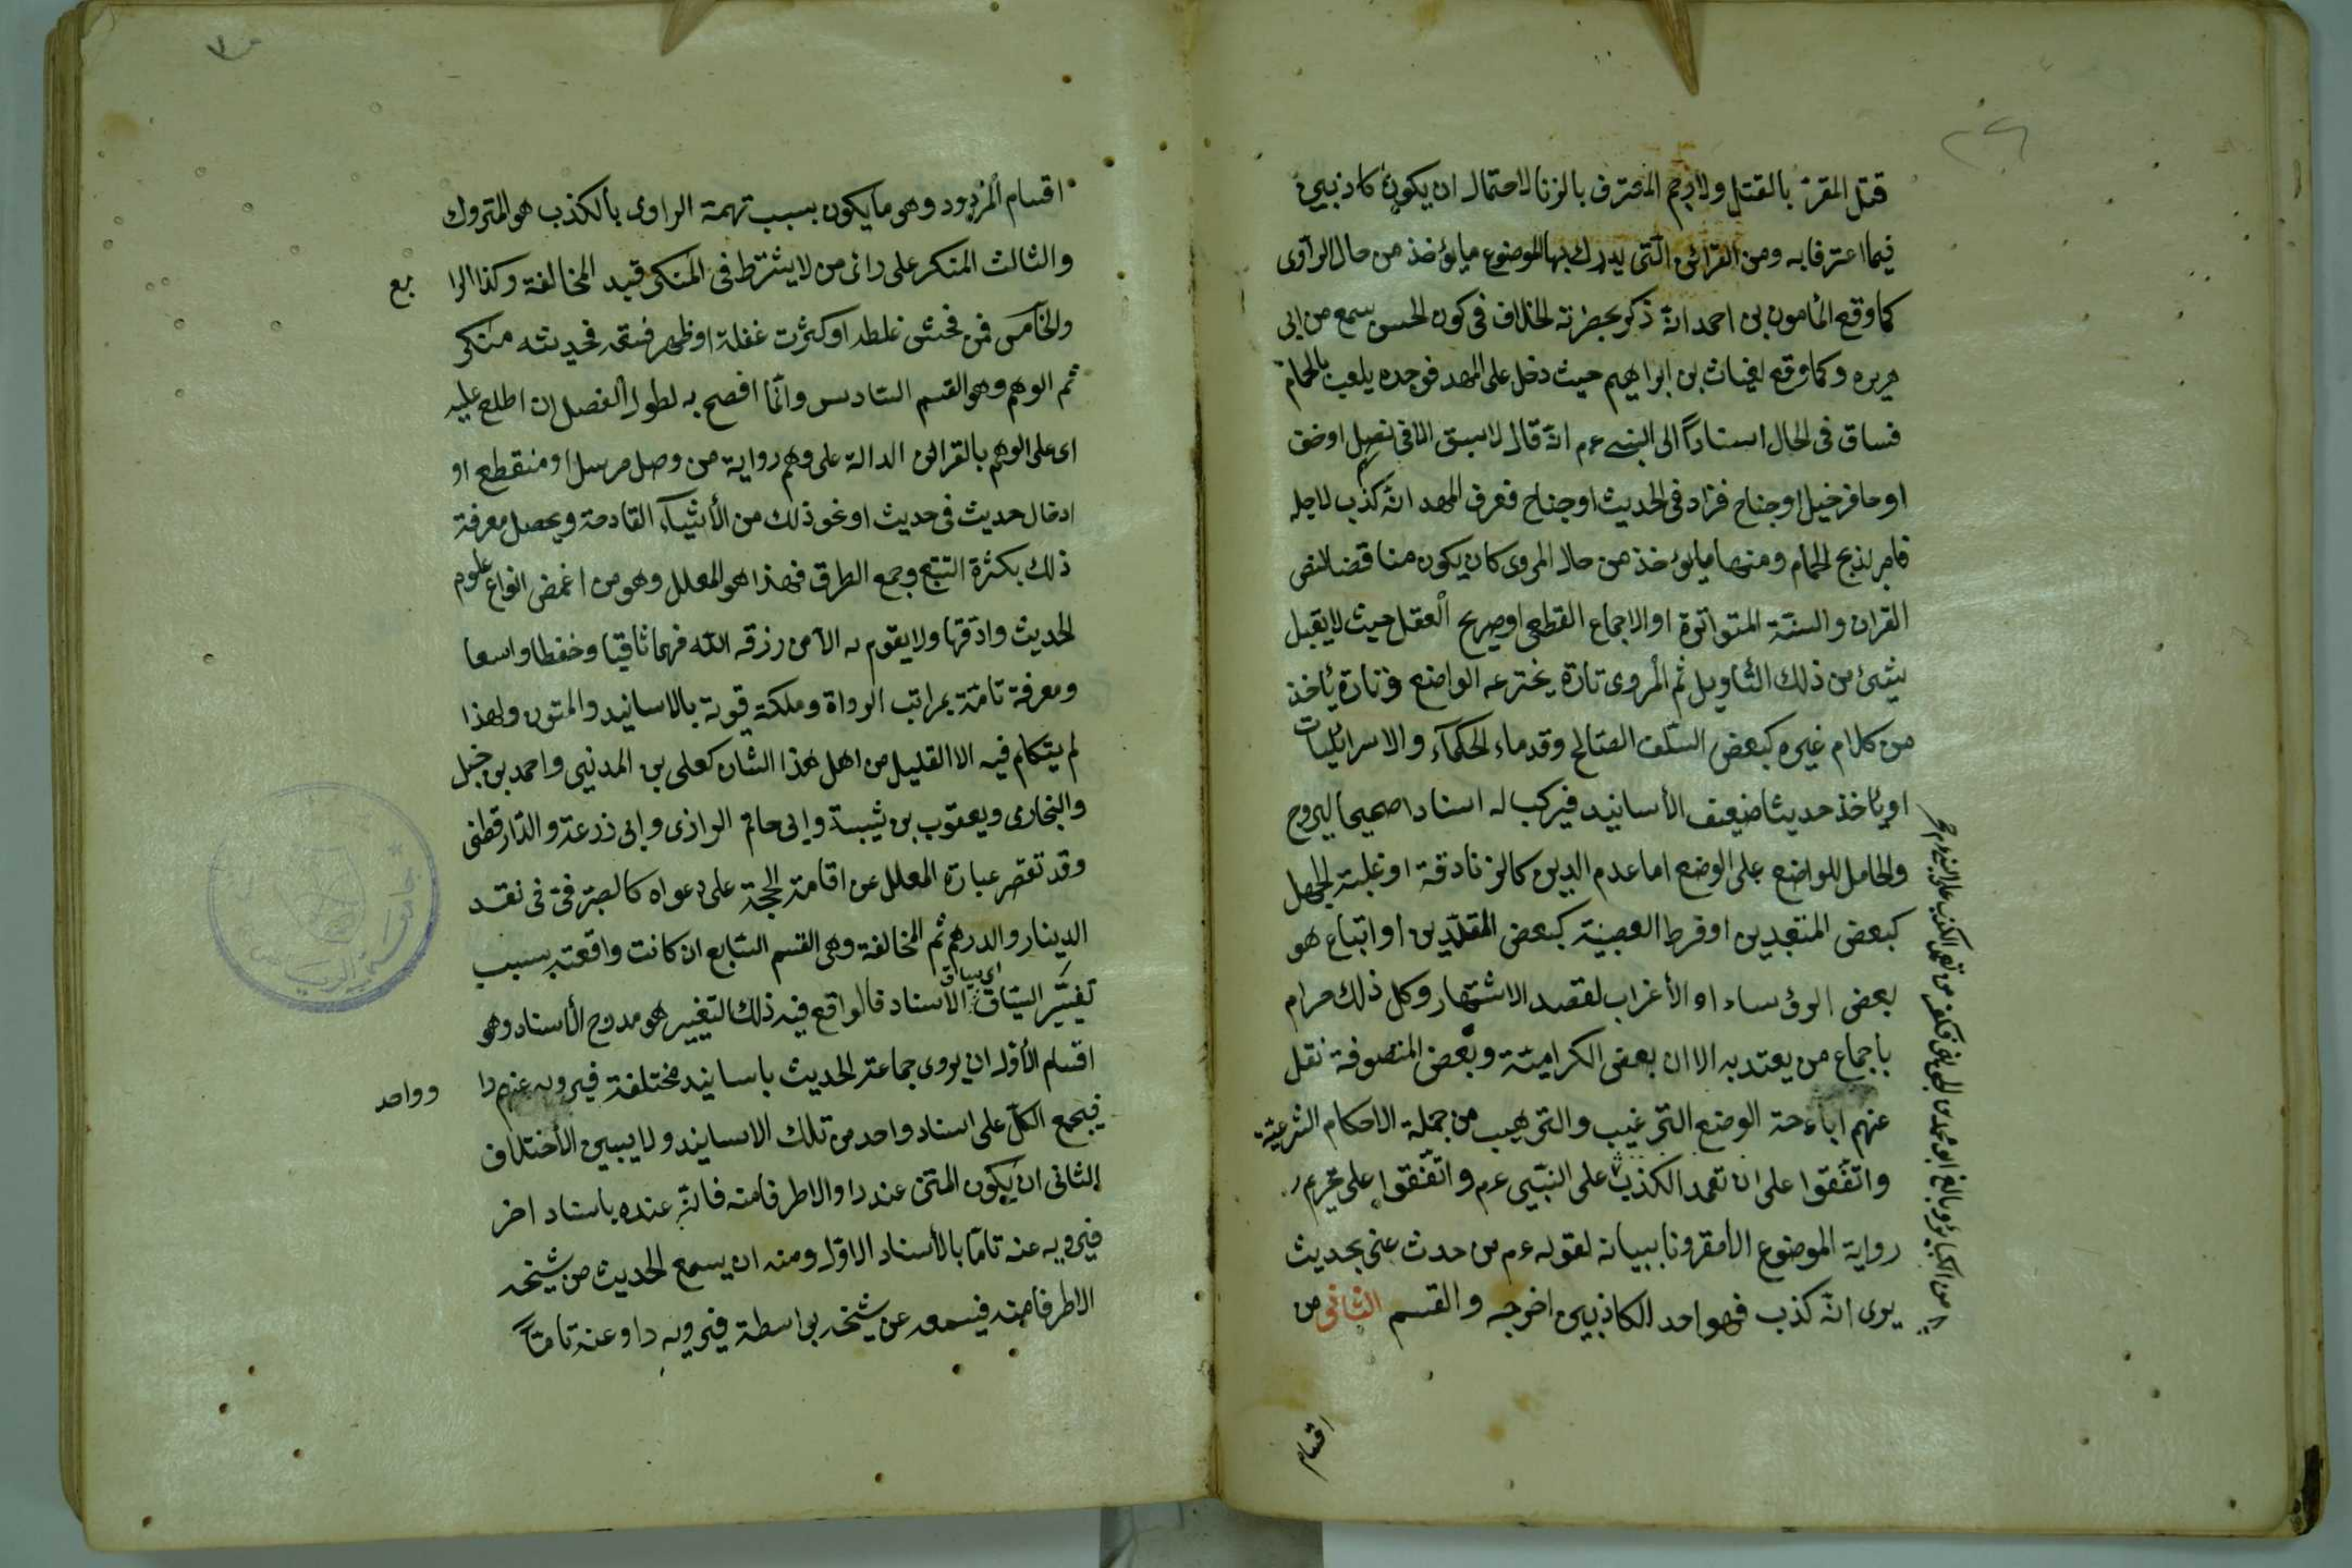 قتل المقرّ بالقتل ولا رجم المعترف بالزنا لاحتمال ان يكون كاذبين
فيما اعترفا به ومن القرائن الّتى يدرك بها الموضوع ما يؤخذ من حال الراوى
كما وقع المأمون بن احمد انّه ذكر بحضرته الخلاف فى كون الحسن سمع من ابى
هريره وكما وقع لغياث بن ابراهيم حيث دخل على المهد فوجده يلعب بالحمام
فساق فى الحال اسناداً الى النبى عم انّه قال لا سبق الا فى نصل او خف
او حافر خيل او جناح فزاد فى الحديث او جناح فعرف المهد انّه كذب لاجله
فامر بذبح الحمام ومنها ما يؤخذ من حال المروى كان يكون مناقضا لنص
القران والسنّة المتواترة او الاجماع القطعى او صريح العقل حيث لا يقبل
شيئ من ذلك التأويل ثم المروى تارة يخترعه الواضع وتارة يأخذ
من كلام غيره كبعض السّلف الصّالح وقدماء الحكمآء والاسرائليات
او يأخذ حديثا ضيعف الأسانيد فيركب له اسنادا صحيحا ليروج
والحامل للواضع على الوضع اما عدم الدين كالزنادقة او غلبة الجهل
كبعض المتعبدين او فرط العصبيّة كبعض المقلّدين او اتباع هو
بعض الرؤساء او الأغراب لقصد الاشتهار وكل ذلك حرام
باجماع من يعتد به الا ان بعض الكراميّة وبعض المتصوفة نقل
عنهم اباحة الوضع الترغيب والترهيب من جملة الاحكام الشرعيّة
واتّفقوا على ان تعمد الكذب على النبّى عم واتّفقوا على تحريم
رواية الموضوع الا مقرونا ببيانه لقوله عم من حدث عنى بحديث
يرى انّه كذب فهو احد الكاذبين اخرجه والقسم الثانى من
من الكبائر وبالغ ابو محمد الجوينى فكفر من تعمد الكذب على النبى عم
اقسام
اقسام المردود وهو ما يكون بسبب تهمة الراوى بالكذب هو المتروك
والثالث المنكر على راى من لا يشترط فى المنكر قيد المخالفة وكذا الرا
بع
والخآمس فمن فحش غلطه او كثرت غفلة او ظهر فسقه فحديثه منكر
ثم الوهم وهو القسم السّادس وانّما افصح به لطول الفصل ان اطلع عليه
اى على الوهم بالقرائن الدالة على وهم رواية من وصل مرسل او منقطع او
ادخال حديث فى حديث او نحو ذلك من الأشيآء القادحة ويحصل معرفة
ذلك بكثرة التتبع وجمع الطرق فهذا هو المعلل وهو من اغمض انواع علوم
الحديث وادّقها ولا يقوم به الّا من رزقه الله فهما ثاقبا وحفظا واسعا
ومعرفة تامّة بمراتب الرواة وملكة قوية بالاسانيد والمتون ولهذا
لم يتكلم فيه الا القليل من اهل هذا الشان كعلى بن المدنيى واحمد بن حنبل
والبخارى ويعقوب بن شيبة وابى حاتم الرازى وابى زرعة والدّارقطنى
وقد تقصر عبارة المعلل عن اقامة الحجّة على دعواه كالصّرفى فى نقد
الدينار والدرهم ثم المخالفة وهى القسم السّابع ان كانت واقعته بسبب
اى سياق
تغيّير السّياق الأسناد فالواقع فيه ذلك التغيير هو مدرج الأسناد وهو
اقسام الأوّل ان يروى جماعة الحديث باسانيد مختلفة فيرويه عنهم را
و واحد
فيجمع الكلّ على اسناد واحد من تلك الاسانيد ولا يبين الأختلاف
الثانى ان يكون المتن عند راو الا طرفا منه فانّه عنده باسناد اخر
فيرويه عنه تامّا بالأسناد الاوّل ومنه ان يسمع الحديث من شيخه
الا طرفا منه فيسمعه عن شيخه بواسطة فيرويه راو عنه تامّاً